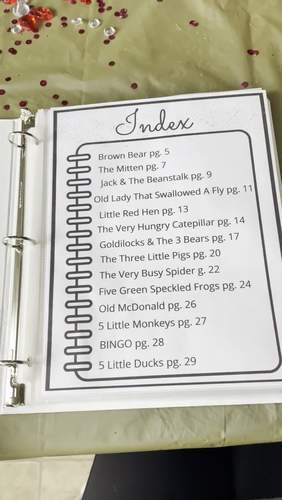 Index
Brown Bear pg. 5
The Mitten pg. 7
Jack & The Beanstalk pg. 9
Old Lady That Swallowed A Fly pg. 11
Little Red Hen pg. 13
The Very Hungry Catepillar pg. 14
Goldilocks & The 3 Bears pg. 17
The Three Little Pigs pg. 20
The Very Busy Spider g. 22
Five Green Speckled Frogs pg. 24
Old McDonald pg. 26
5 Little Monkeys pg. 27
BINGO pg. 28
5 Little Ducks pg. 29